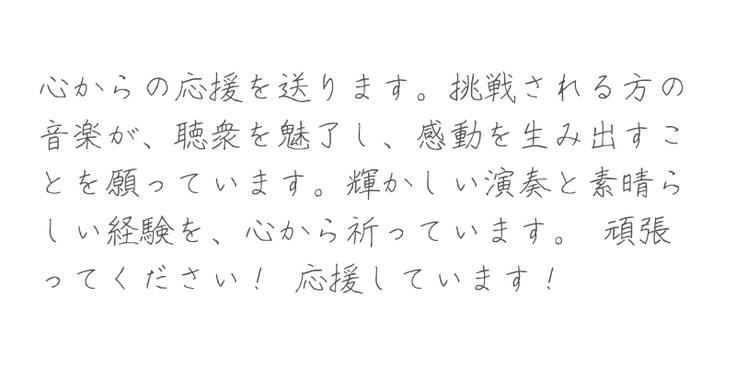 心からの応援を送ります。挑戦される方の
音楽が、聴衆を魅了し、感動を生み出すこ
とを願っています。輝かしい演奏と素晴ら
しい経験を、心から祈っています。 頑張
ってください！ 応援しています！